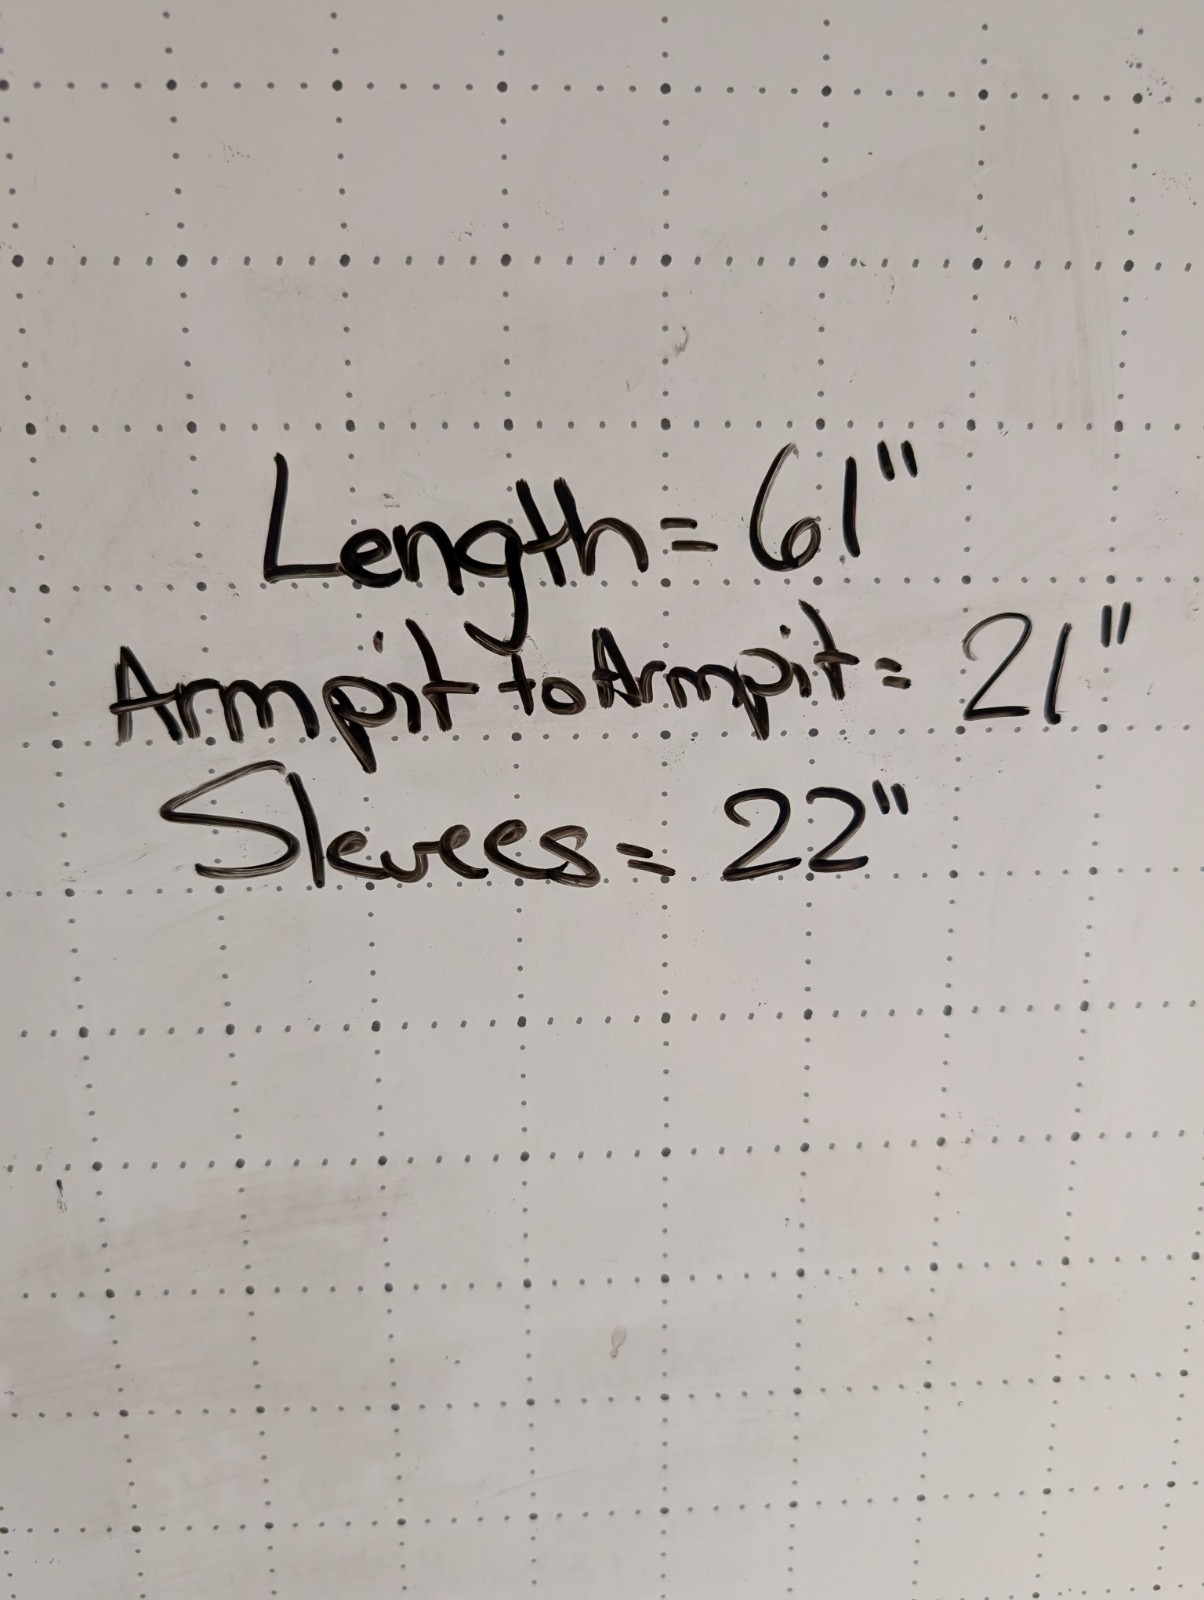 Length = 61"
Armpit to Armpit = 21"
Slevees = 22"